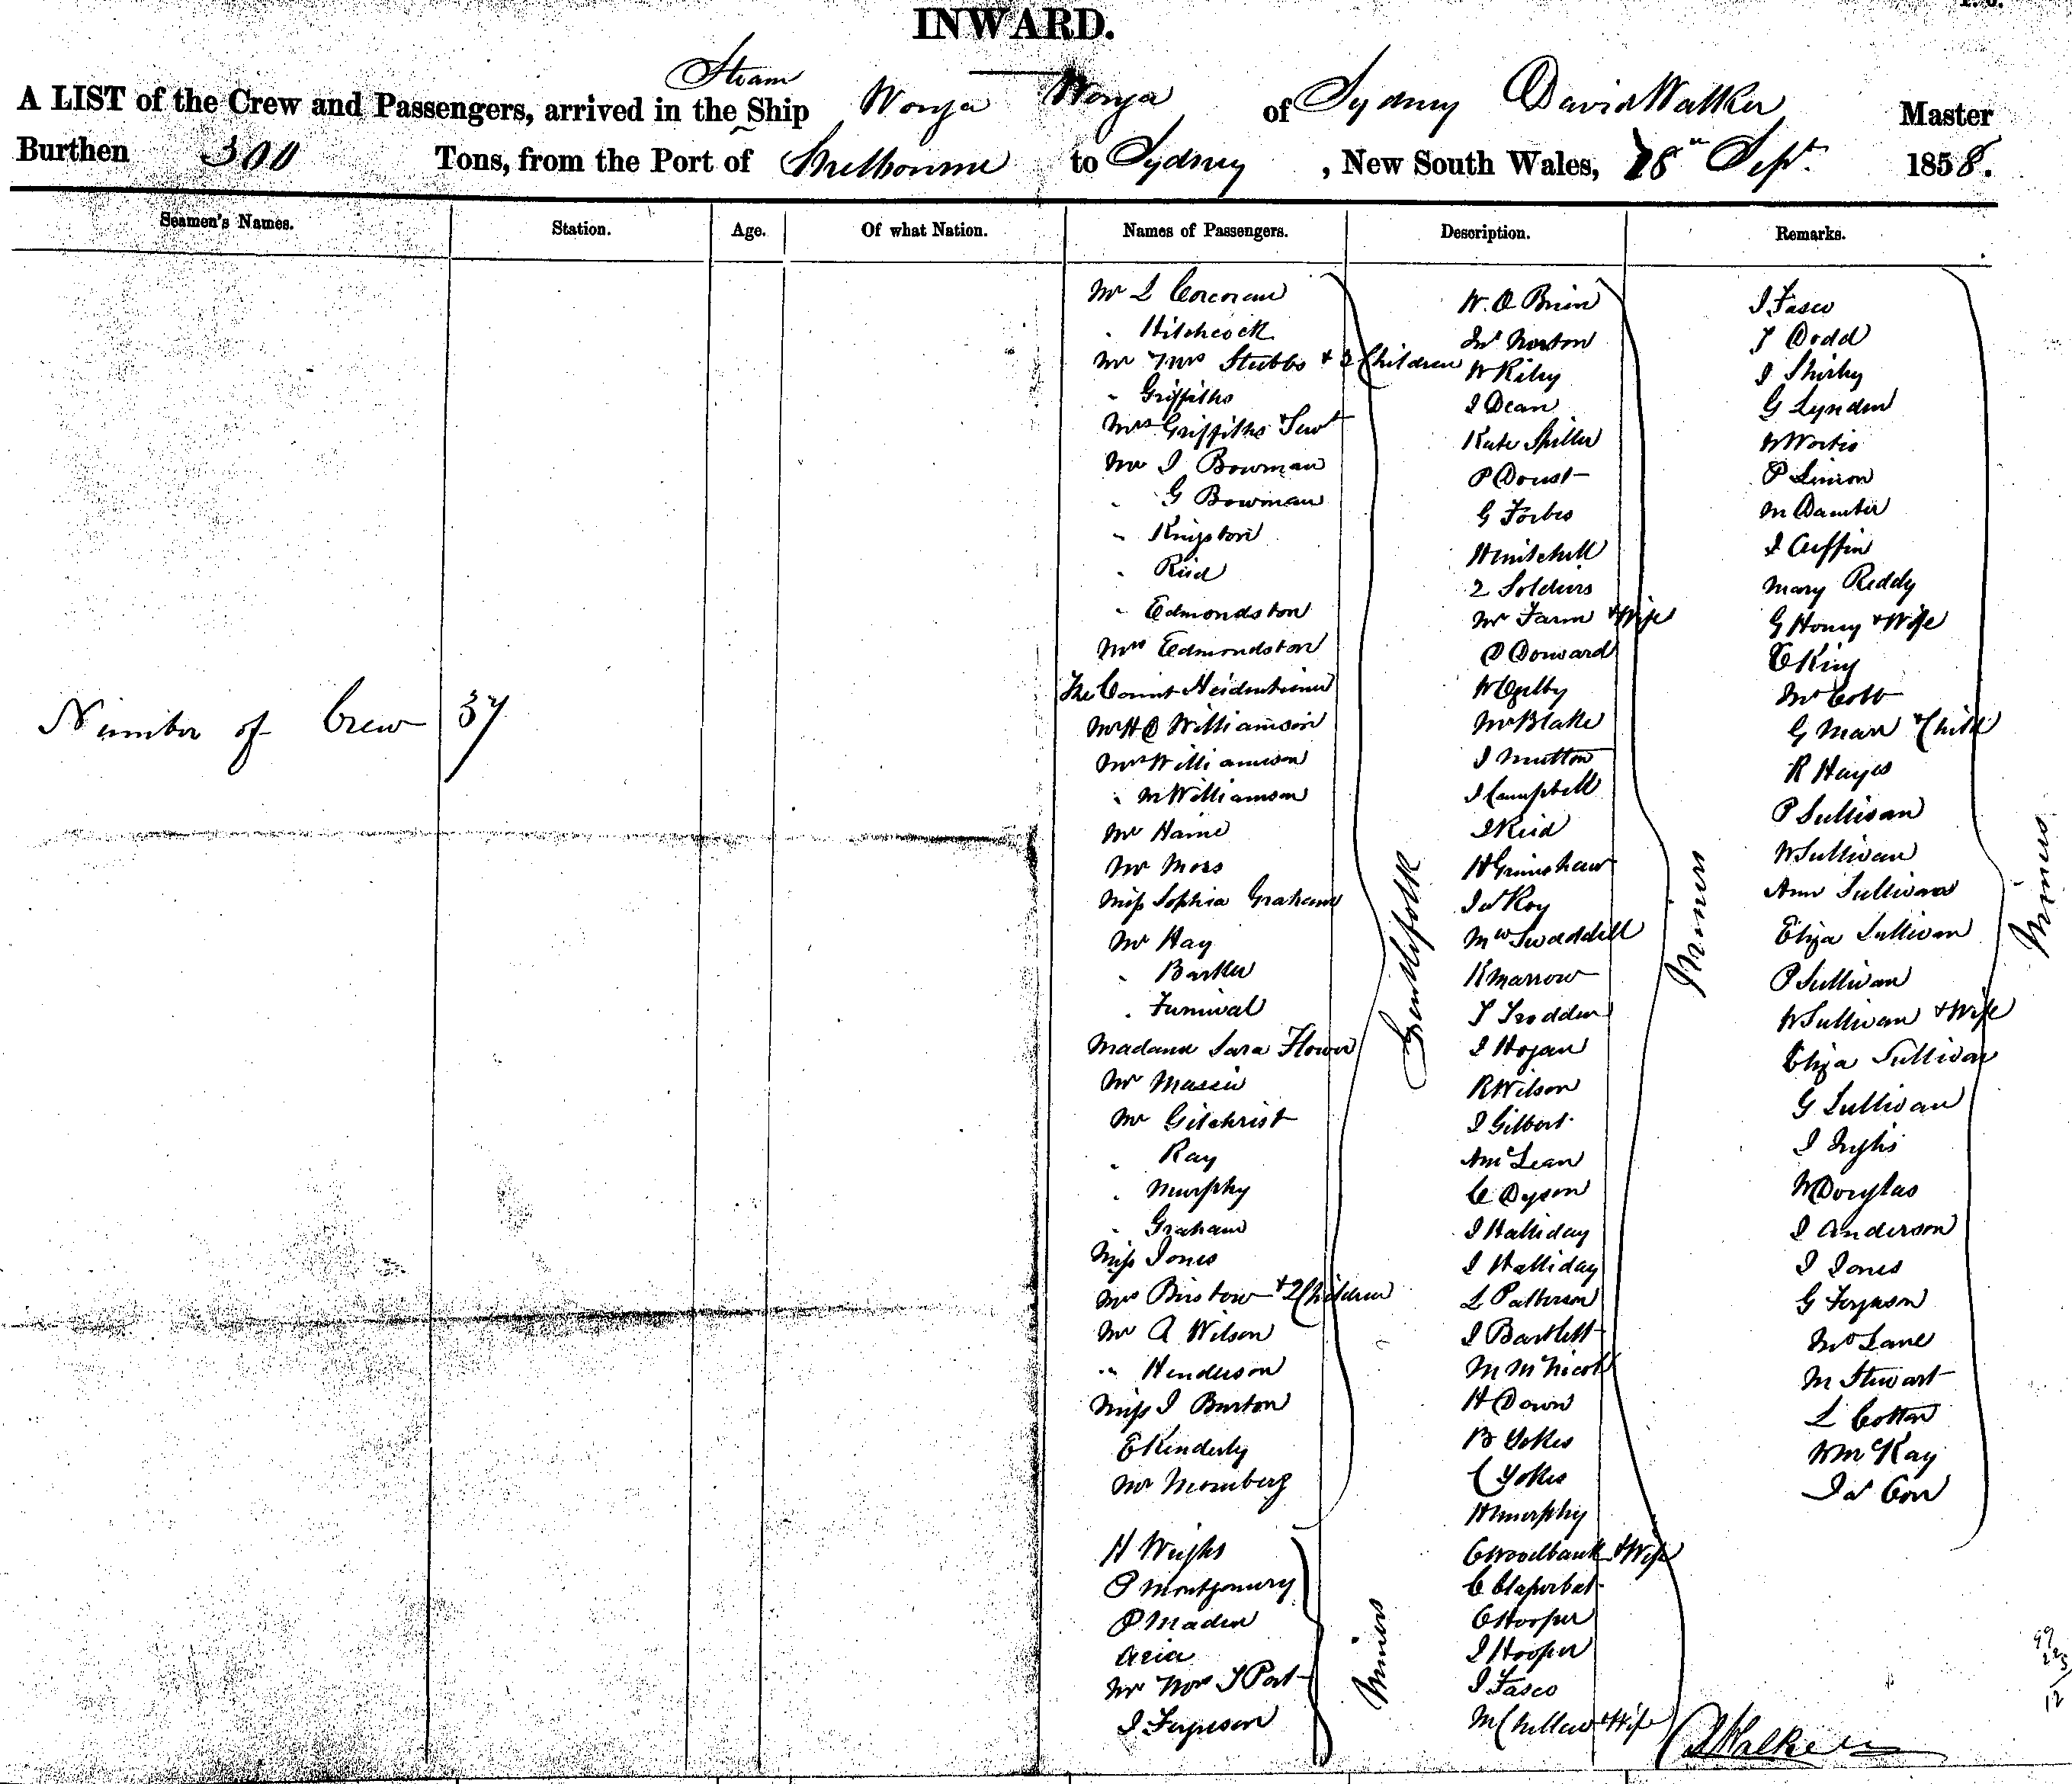 INWARD.
Steam
A LIST of the Crew and Passengers, arrived in the Ship Wonga Wonga of Sydney David Walker Master
Burthen 300 Tons, from the Port of Melbourne to Sydney , New South Wales, 18th Sept. 1858.
Seamen's Names. Station. Age. Of what Nation. Names of Passengers. Description. Remarks.
Number of Crew 37
Mr L Corcoran
" Hitchcock
Mr & Mrs Stubbs & 2 Children
" Griffiths
Mrs Griffiths & Servt
Mr J Bowman
" G Bowman
" Kingston
" Reid
" Edmondston
Mrs Edmondston
The Count
Mr H C Williamson
Mrs Williamson
" M Williamson
Mr Haine
Mr Moss
Miss Sophia Graham
Mr Hay
" Barker
" Furnival
Madame Sara Flower
Mr Massie
Mr Gilchrist
" Ray
" Murphy
" Graham
Miss Jones
Mrs Bristow & 2 Children
Mr A Wilson
" Henderson
Miss J Burton
E Kinderly
Mr Mornberg
Gentlefolk
H Wright
P Montgomery
P Maden
Asia
Mr Mrs J Port
J Ferguson
Miners
W. O Brien
Js Norton
W Riley
J Dean
Kate Spiller
P Doust
G Forbes
H Mitchell
2 Soldiers
Mr Farm & Wife
D Dorward
W Ogilby
Mr Blake
J Mutton
J Campbell
J Reid
H Grimshaw
Js Roy
Mw Swaddell
R Marrow
T Trodden
J Hogan
R Wilson
J Gilbert
A McLean
C Dyson
J Halliday
J Halliday
L Patterson
J Bartlett
M McNicol
H Down
B Yokes
C Yokes
H Murphy
C Woodbank & Wife
C
C Hooper
J Hooper
J Fasco
M & Wife
Miners
J Fasco
T Dodd
J Shirley
G Lynden
W
P Linion
M
J Cuffin
Mary Reddy
G Honey & Wife
E King
Mr Cobb
G Marr & Child
R Hayes
P Sullivan
W Sullivan
Ann Sullivan
Eliza Sullivan
P Sullivan
W Sullivan & Wife
Eliza Sullivan
G Sullivan
J Inglis
W Douglas
J Anderson
J Jones
G Ferguson
Mrs Lane
M Stewart
L Cotton
W McKay
Js Con
Miners
D Walker